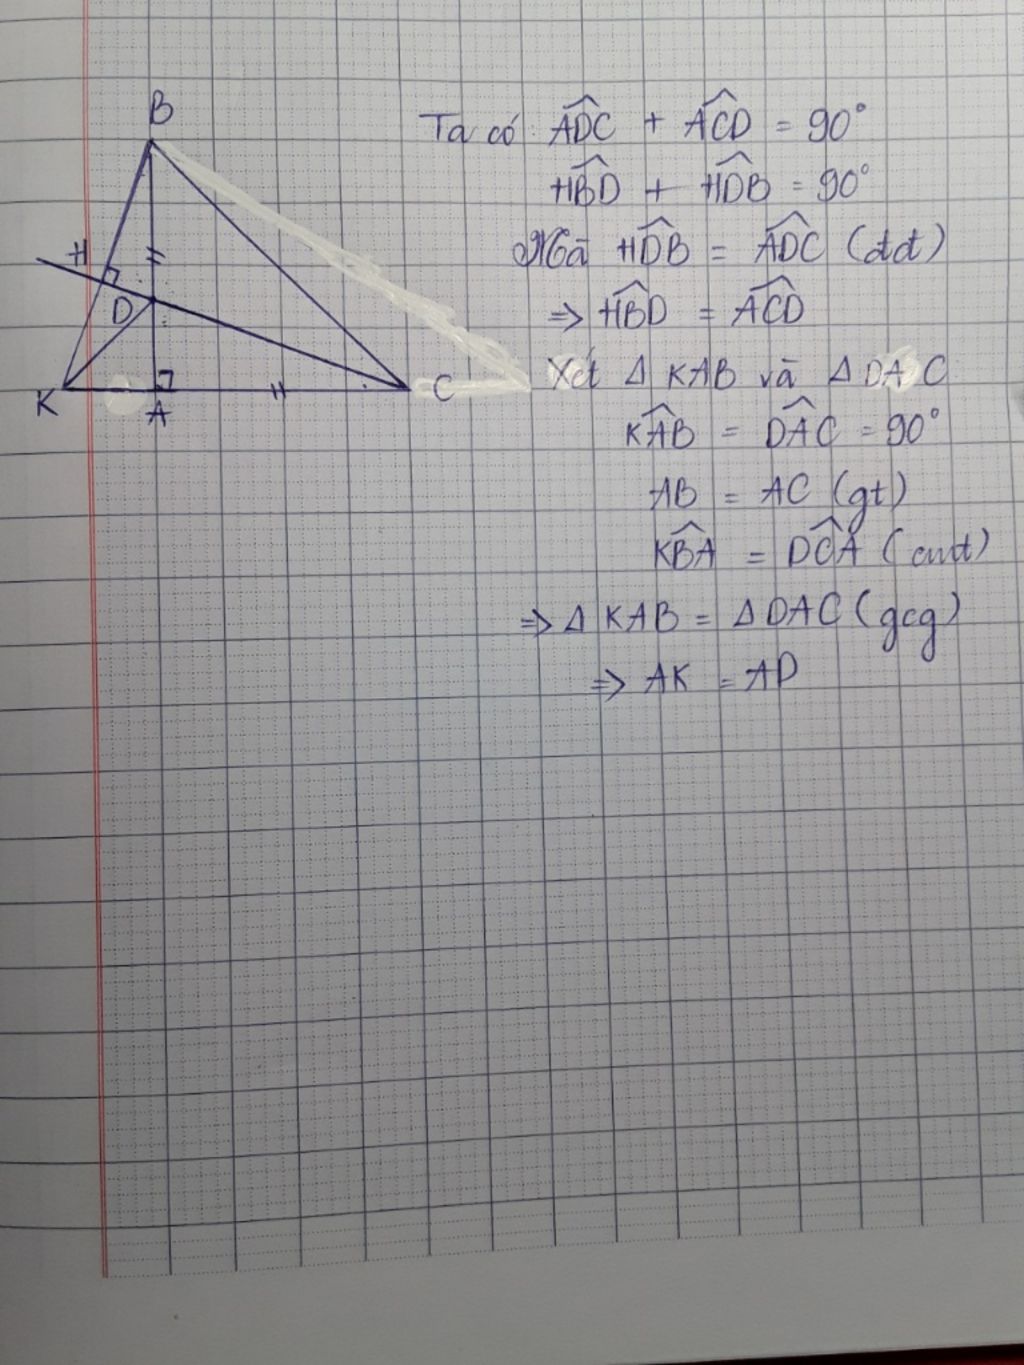 B
H
D
K
A
C
Ta có: ADC + ACD = 90°
HBD + HDB = 90°
Mà HDB = ADC (đđ)
=> HBD = ACD
Xét Δ KAB và Δ DAC
KAB = DAC = 90°
AB = AC (gt)
KBA = DCA (cmt)
=> Δ KAB = Δ DAC (gcg)
=> AK = AD